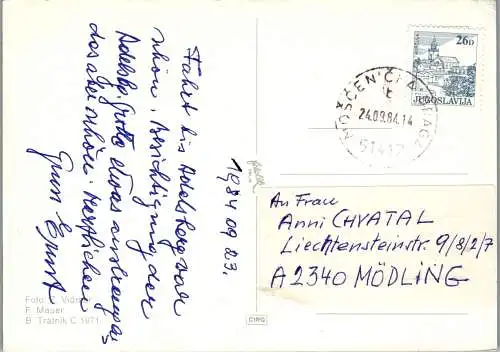 Fahrt bis Adelsberg war
schön. Besichtigung der
Adelsbg. Grotte etwas anstrengend,
das aber schön. Herzlichen
Gruss Ernst
1984 09 23.
Foto:
P. Mauer
B. Tratnik C 1971
26D
JUGOSLAVIJA
MOŠĆENIČKA DRAGA
24.09.84.14
51417
An Frau
Anni CHVATAL
Liechtensteinstr. 9/8/2/7
A2340 MÖDLING